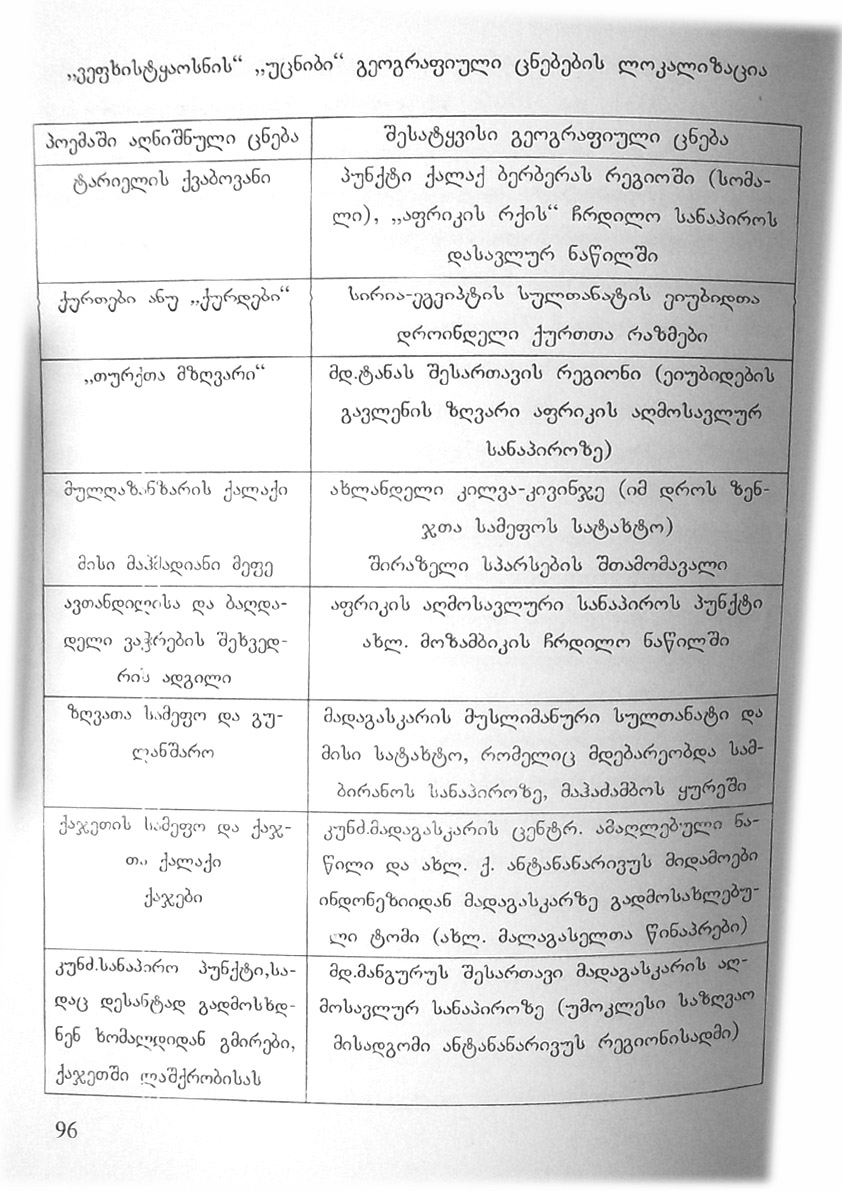 „ვეფხისტყაოსნის“ „უცნიბი“ გეოგრაფიული ცნებების ლოკალიზაცია
პოემაში აღნიშნული ცნება
შესატყვისი გეოგრაფიული ცნება
ტარიელის ქვაბოვანი
პუნქტი ქალაქ ბერბერას რეგიოში (სომა-
ლი), „აფრიკის რქის“ ჩრდილო სანაპიროს
დასავლურ ნაწილში
ქურთები ანუ „ქურდები“
სირია-ეგვიპტის სულთანატის ეიუბიდთა
დროინდელი ქურთთა რაზმები
„თურქთა მზღვარი“
მდ.ტანას შესართავის რეგიონი (ეიუბიდების
გავლენის ზღვარი აფრიკის აღმოსავლურ
სანაპიროზე)
მულღაზანზარის ქალაქი
მისი მაჰმადიანი მეფე
ახლანდელი კილვა-კივინჯე (იმ დროს ზენ-
ჯთა სამეფოს სატახტო)
შირაზელი სპარსების შთამომავალი
ავთანდილისა და ბაღდა-
დელი ვაჭრების შეხვედ-
რის ადგილი
აფრიკის აღმოსავლური სანაპიროს პუნქტი
ახლ. მოზამბიკის ჩრდილო ნაწილში
ზღვათა სამეფო და გუ-
ლანშარო
მადაგასკარის მუსლიმანური სულთანატი და
მისი სატახტო, რომელიც მდებარეობდა სამ-
ბირანოს სანაპიროზე, მაჰაძამბოს ყურეში
ქაჯეთის სამეფო და ქაჯ-
თა ქალაქი
ქაჯები
კუნძ.მადაგასკარის ცენტრ. ამაღლებული ნა-
წილი და ახლ. ქ. ანტანანარივუს მიდამოები
ინდონეზიიდან მადაგასკარზე გადმოსახლებუ-
ლი ტომი (ახლ. მალაგასელთა წინაპრები)
კუნძ.სანაპირო პუნქტი,სა-
დაც დესანტად გადმოსხდ-
ნენ ხომალდიდან გმირები,
ქაჯეთში ლაშქრობისას
მდ.მანგურუს შესართავი მადაგასკარის აღ-
მოსავლურ სანაპიროზე (უმოკლესი საზღვაო
მისადგომი ანტანანარივუს რეგიონისადმი)
96